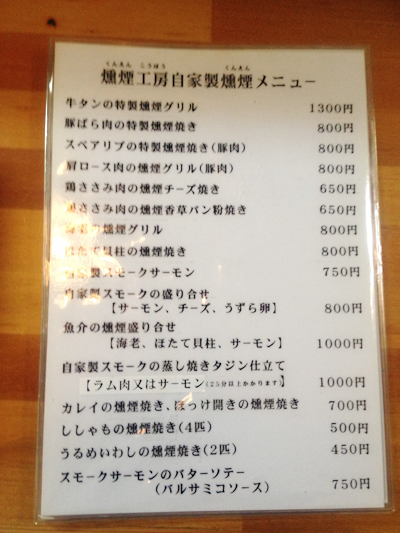 くんえん こうぼう くんえん
燻煙工房自家製燻煙メニュー
牛タンの特製燻煙グリル 1300円
豚ばら肉の特製燻煙焼き 800円
スペアリブの特製燻煙焼き(豚肉) 800円
肩ロース肉の燻煙グリル(豚肉) 800円
鶏ささみ肉の燻煙チーズ焼き 650円
ささみ肉の燻煙香草パン粉焼き 650円
の燻煙グリル 800円
ほたて貝柱の燻煙焼き 800円
自家製スモークサーモン 750円
自家製スモークの盛り合せ
【サーモン、チーズ、うずら卵】 800円
魚介の燻煙盛り合せ
【海老、ほたて貝柱、サーモン】 1000円
自家製スモークの蒸し焼きタジン仕立て
【ラム肉又はサーモン(25分以上かかります)】 1000円
カレイの燻煙焼き、ほっけ開きの燻煙焼き 700円
ししゃもの燻煙焼き(4匹) 500円
うるめいわしの燻煙焼き(2匹) 450円
スモークサーモンのバターソテー
(バルサミコソース) 750円